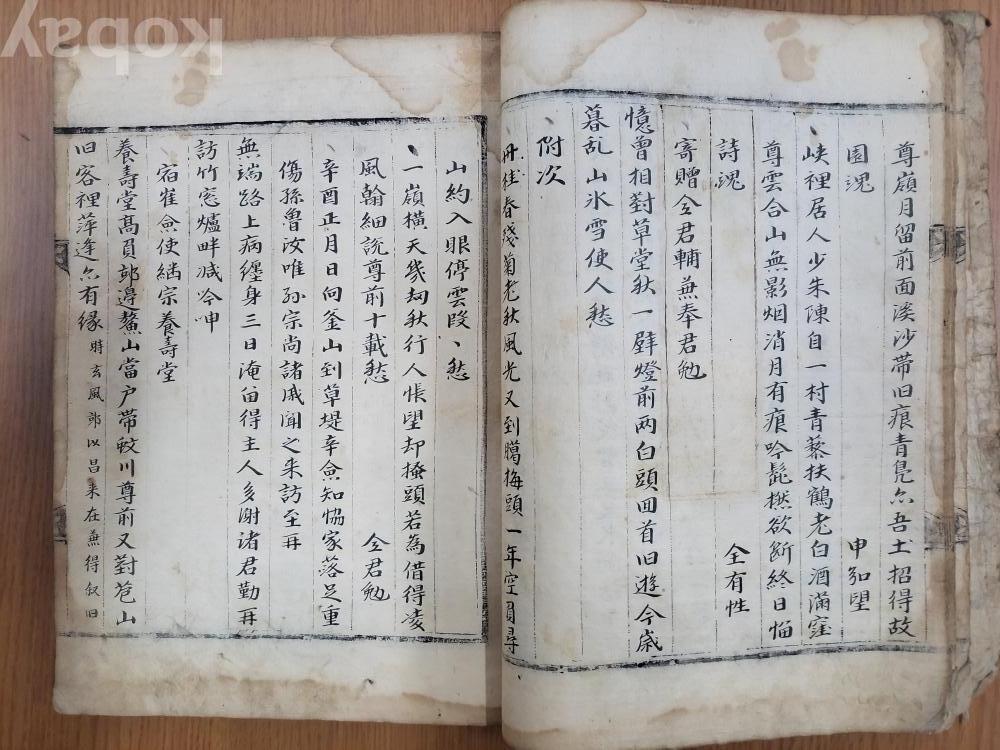 尊嶺月留前面溪沙帶旧痕青凫亦吾土招得故
園魂 申知聖
峡裡居人少朱陳自一村青藜扶鶴老白酒滿窪
尊雲合山無影烟消月有痕吟髭撚欲斷終日惱
詩魂 全有性
寄贈全君輔兼奉君勉
憶曾相對草堂秋一壁燈前两白頭回首旧遊今歲
暮乱山氷雪使人愁
附次
桂春殘菊老秋風光又到臘梅頭一年空負尋
山約入眼停雲段、愁
一嶺横天幾刼秋行人悵望却掩頭若為借得凌
風翰細說尊前十載愁 全君勉
辛酉正月日向釜山到草堤辛僉知恊家落足重
傷孫魯汝唯孙宗尚諸戚聞之来訪至再
無端路上病纏身三日淹留得主人多謝诸君勤再
訪竹窓爐畔减吟呻
宿崔僉使緒宗養壽堂
養壽堂髙員郭邊鰲山當户帶蛟川尊前又對苞山
旧客裡萍逢亦有緣 時玄風郭以昌来在兼得叙旧
kobay